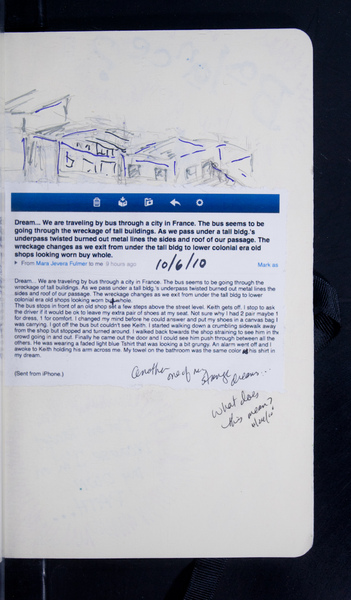 Dream... We are traveling by bus through a city in France. The bus seems to be
going through the wreckage of tall buildings. As we pass under a tall bldg.'s
underpass twisted burned out metal lines the sides and roof of our passage. The
wreckage changes as we exit from under the tall bldg to lower colonial era old
shops looking worn buy whole.
From Mara Jevera Fulmer to me 9 hours ago
10/6/10
Mark as
Dream... We are traveling by bus through a city in France. The bus seems to be going through the
wreckage of tall buildings. As we pass under a tall bldg.'s underpass twisted burned out metal lines the
sides and roof of our passage. The wreckage changes as we exit from under the tall bldg to lower
colonial era old shops looking worn but whole.
The bus stops in front of an old shop set a few steps above the street level. Keith gets off. I stop to ask
the driver if it would be ok to leave my extra pair of shoes at my seat. Not sure why I had 2 pair maybe 1
for dress, 1 for comfort. I changed my mind before he could answer and put my shoes in a canvas bag I
was carrying. I got off the bus but couldn't see Keith. I started walking down a crumbling sidewalk away
from the shop but stopped and turned around. I walked back towards the shop straining to see him in the
crowd going in and out. Finally he came out the door and I could see him push through between all the
others. He was wearing a faded light blue Tshirt that was looking a bit grungy. An alarm went off and I
awoke to Keith holding his arm across me. My towel on the bathroom was the same color as his shirt in
my dream.
(Sent from iPhone.)
Another one of my
strange dreams...
What does
this mean?